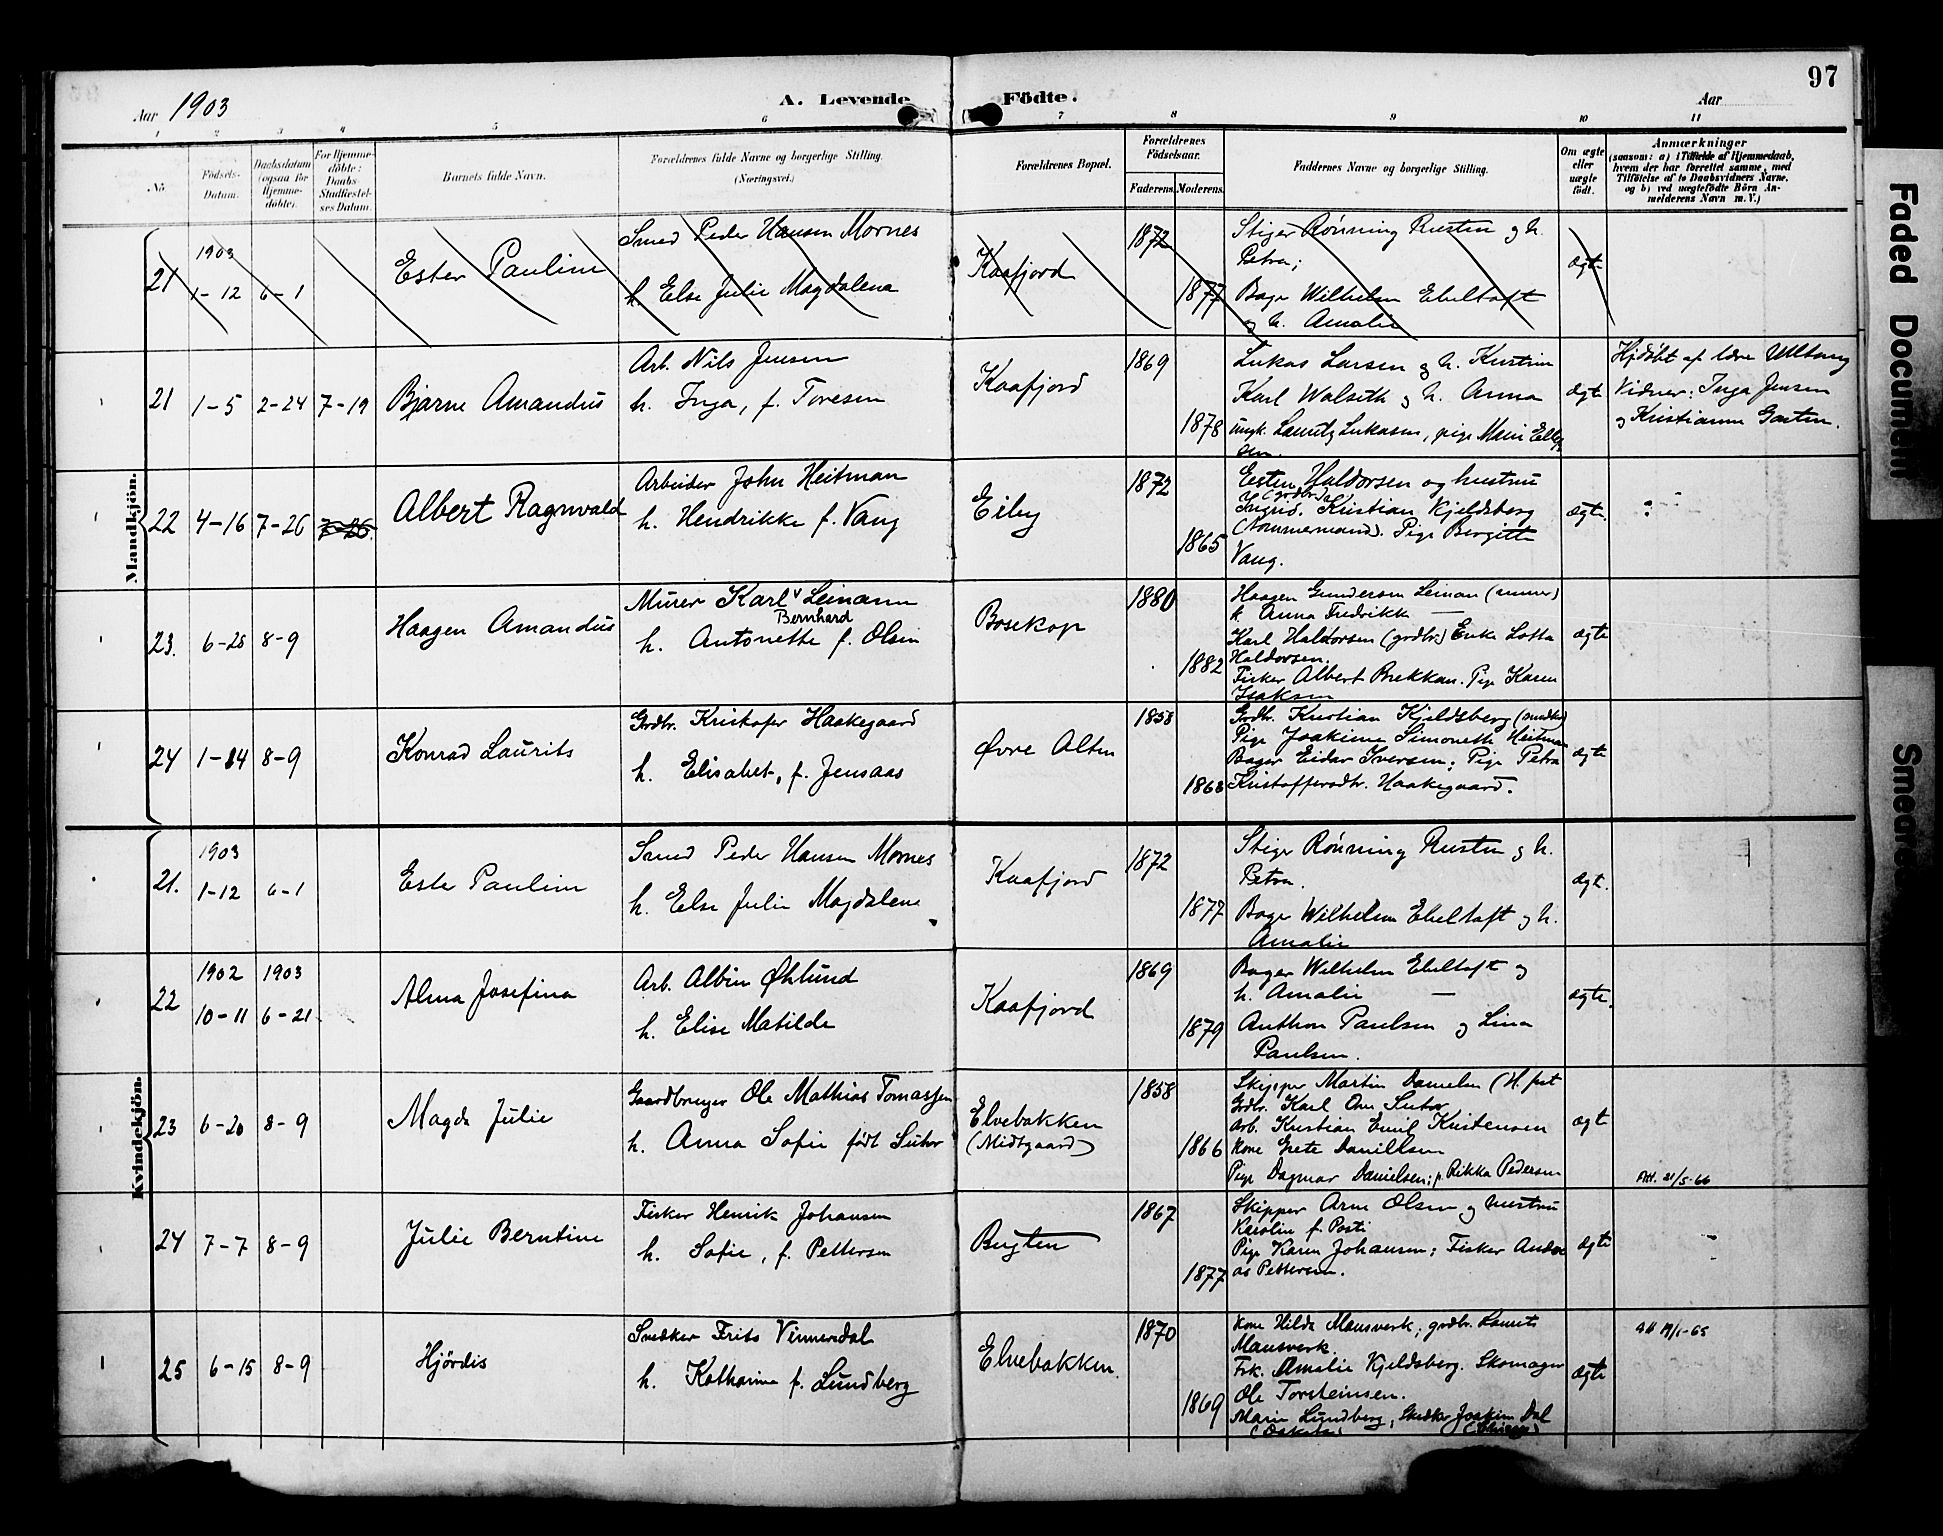 97
Aar 1903 A. Levende Födte. Aar
1 2 3 4 5 6 7 8 9 10 11
No. Födsels-Datum. Daabsdatum (ogsaa for Hjemme-döbte). For Hjemme-döbte: Daabs-Stadfæstel-ses Datum. Barnets fulde Navn. Forældrenes fulde Navne og borgerlige Stilling. (Næringsvei.) Forældrenes Bopæl. Forældrenes Födselsaar. Faderens. Moderens. Faddernes Navne og borgerlige Stilling. Om ægte eller uægte födt. Anmærkninger (saasom: a) i Tilfælde af Hjemmedaab, hvem der har forrettet samme, med Tilföielse af to Daabsvidners Navne, og b) ved uægtefödte Börn An-melderens Navn m. V.)
Mandkjön.
21 1903 1-12 6-1 Ester Pauline
Smed Peder Hansen Mornes
h. Else Julie Magdalena
Kaafjord 1872 1877
Stiger Rønning Rusten og h.
Petra;
Bager Wilhelm Ebeltoft
og h. Amalie
ægte
21 1-5 2-24 7-19 Bjarne Amandus
Arb. Nils Jensen
h. Inga, f. Toresen
Kaafjord 1869 1878
Lukas Larsen og h. Kristine
Karl Walseth og h. Anna
ungk. Lauritz Lukasen, pige Marie
ægte
Hjdöbt af lære
Vidner: Inga Jensen
og Kristianna
22 4-16 7-26 7-26. Albert Ragnvald
Arbeider John Heitman
h. Hendrikke f. Vang
Eiby 1872 1865
Esten Haldorsen og hustru
(grdbr.)
Ingrid. Kristian Kjeldsberg
(Tømmermand). Pige Birgitte
Vang.
ægte.
23. 6-28 8-9 Haagen Amandus
Murer Karl Leinann
Bernhard
h. Antonette f. Olsen
Bosekop 1880 1882
Haagen Gundersen Leinan (murer)
h. Anna Fredrikke —
Karl Haldorsen (grdbr.) Enke Lotta
Haldorsen.
Fisker Albert Brekkan. Pige Karen
Isaksen
ægte
24 1-14 8-9 Konrad Laurits
Grdbr. Kristofer Haakegaard
h. Elisabet, f. Jensaas
Øvre Alten 1858 1863
Grdbr. Kristian Kjeldsberg
Pige Joakime Simonette Heitman
Bager Eidar Iversen; Pige Petra
Kristoffersdtr. Haakegaard.
ægte
Kvindekjön.
21. 1903 1-12 6-1 Ester Pauline
Smed Peder Hansen Mornes
h. Else Julie Magdalene
Kaafjord 1872 1877
Stiger Rønning Rusten og h.
Petra.
Bager Wilhelm Ebeltoft og h.
Amalie
ægte.
22 1902 10-11 1903 6-21 Alma Josefina
Arb. Albin Øhlund
h. Elise Matilde
Kaafjord 1869 1879
Bager Wilhelm Ebeltoft og
h. Amalie —
Anthon Paulsen og Lina
Paulsen.
ægte.
23 6-20 8-9 Magda Julie
Gaardbruger Ole Mathias Tomassen
h. Anna Sofie født Suhr
Elvebakken
(Midtgaard)
1858 1866
Skipper Martin Danielsen
Grdbr. Karl
Arb. Kristian Emil Kristensen
Kone Grete Danielsen
Pige Dagmar Danielsen; p. Rikka Pedersen
ægte
Att. 21/5-66
24 7-7 8-9 Julie Berntine
Fisker Henrik Johansen
h. Sofie, f. Pettersen
Bugten 1867 1877
Skipper Arne Olsen og hustru
Karolin f. Posti
Pige Karen Johansen; Fisker Andre
as Pettersen.
ægte
25 6-15 8-9 Hjördis
Snedker Frits Vinnersdal
h. Katharina f. Lundberg
Elvebakken. 1870 1869
Kone Hilda Mansverk; grdbr. Laurits
Mansverk.
Frk. Amalie Kjeldsberg. Skomager
Ole Torsteinsen.
Marie Lundberg, Snedker Joakim Dal
ægte
Att 19/1-65
Faded Document
Smeared